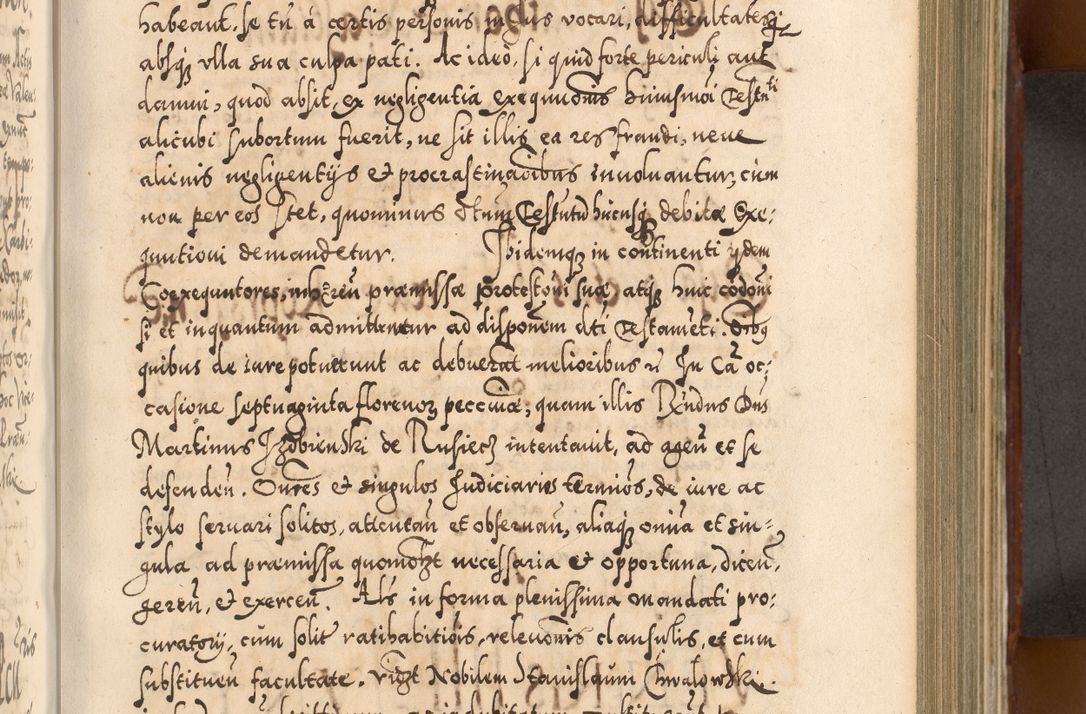 habeant. se tn̄ à certis personis in ius vocari, difficultatesq₃
absq₃ vlla sua culpa pati. Ac ideo, si quid forte periculi aut
damni, quod absit, ex negligentia exequuōnis huiusmōi Testnti
alicubi subortum fuerit, ne sit illis ea res fraudi, neue
alienis negligentijs et procrastinaōibus inuoluantur, cùm
non per eos stet, quominus Testntū hucusq₃ debitæ Exe-
quutioni demandetur. Ibidemq₃ in continenti ijdem
Coexequutores, inhæren̄ præmissæ protestōni suæ atq₃ huic
si et inquantum admittentur ad disponem dti Testameti.
quibus de iure potuerunt ac debuerāt melioribus In Cā oc-
casione septuaginta florenor₃ pecuniæ, quam illis Rn̄dus Dns
Martinus Izdbienski de Rusiecz intentauit, ad agen̄ et se
defenden̄. Omnes et singulos Judiciarios terminos, de iure ac
stylo seruari solitos, attentan̄ et obseruan̄, aliaq₃ omnia et sin-
gula ad præmissa quomōlzt necessaria et opportuna, dicen̄,
geren̄, et exercen̄. Als in forma plenissima mandati pro-
curatorij, cùm solit ratihabitiōis, releuōnis clausulis, et cum
substituen̄ facultate. vigt Nobilem Stanislaum Chwalowski.